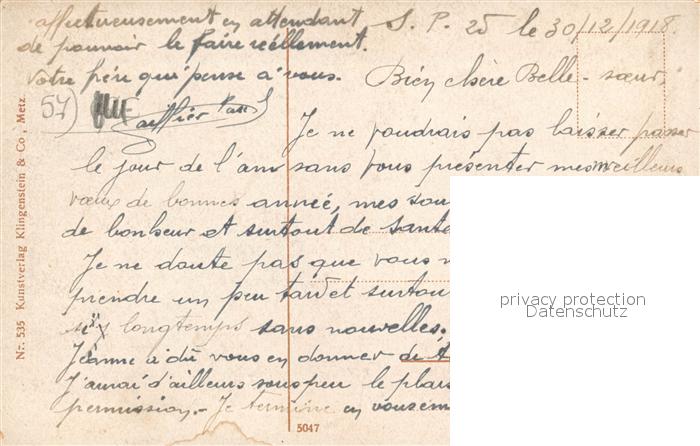 S. P. 25 le 30/12/1918.
Bien chère Belle-sœur,
Je ne voudrais pas laisser passer
le jour de l'an sans vous présenter mes meilleurs
vœux de bonnes année, mes sou
de bonheur et surtout de santé
Je ne doute pas que vous
prendre un peu tard et surtout
si longtemps sans nouvelles.
Jeanne a dû vous en donner de
J'aurai d'ailleurs sous peu le plais
permission. - Je termine en vous em
affectueusement en attendant
de pouvoir le faire réellement.
Votre frère qui pense à vous.
57)
Nr. 535 Kunstverlag Klingenstein & Co, Metz.
5047
privacy protection
Datenschutz